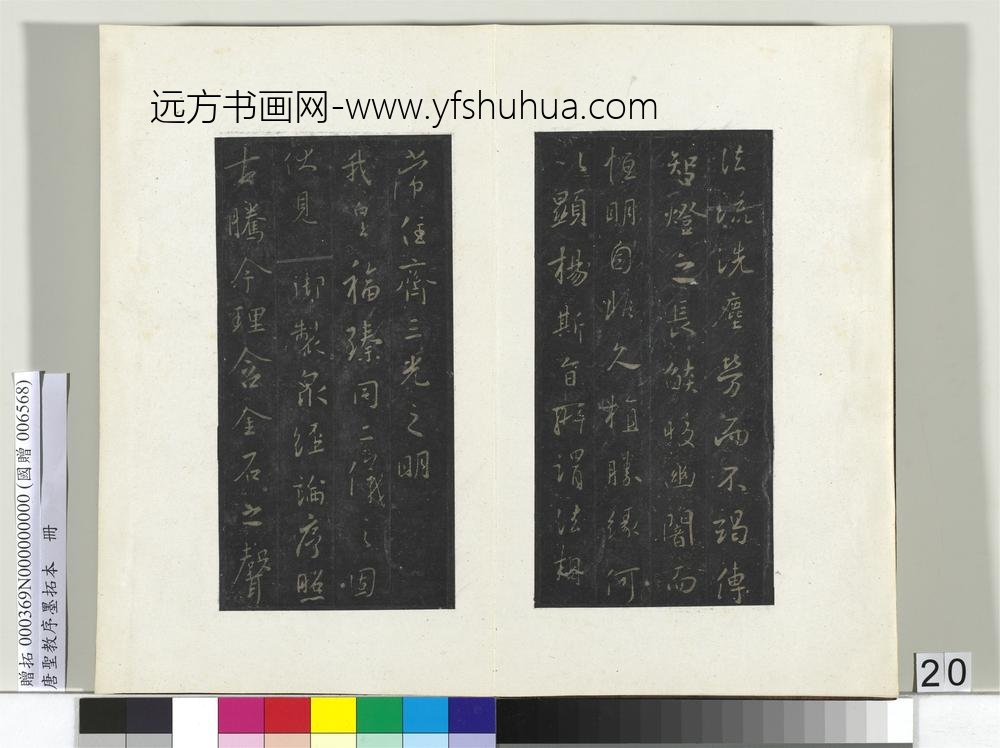 远方书画网-www.yfshuhua.com
法流洗塵勞而不竭傳
智燈之長皎幽闇而
恒明自非久植勝緣何
以顯揚斯旨所謂法相
常住齊三光之明
我皇福臻同二儀之固
伏見 御製衆經論序照
古騰今理含金石之聲
贈拓 000369N000000000 (國贈 006568)
唐聖教序墨拓本 冊
20